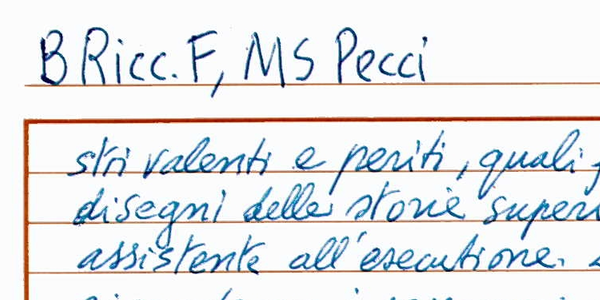 B Ricc. F, MS Pecci
stri valenti e periti, quali
disegni delle storie superi
assistente all'esecutione.